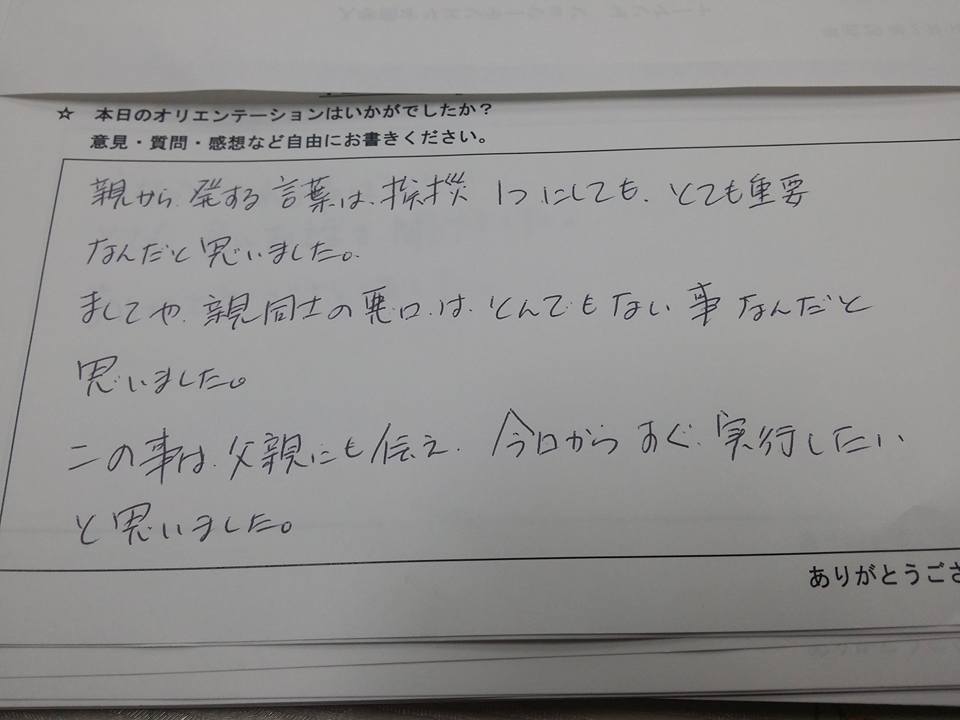 ☆ 本日のオリエンテーションはいかがでしたか？
意見・質問・感想など自由にお書きください。
親から、発する言葉は、挨拶 1つにしても、とても重要
なんだと思いました。
ましてや、親同士の悪口は、とんでもない事なんだと
思いました。
この事は、父親にも伝え、今日からすぐ、実行したい
と思いました。
ありがとうござ